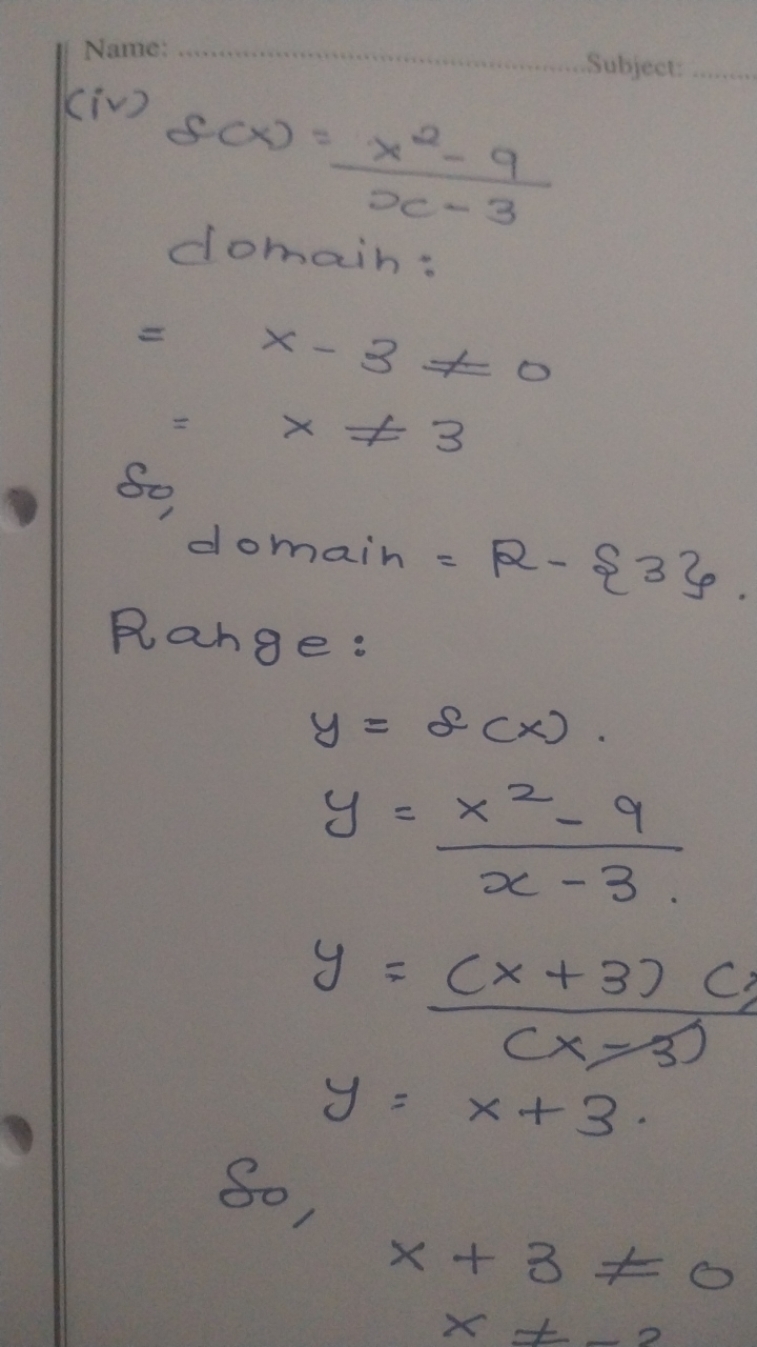 Name: ........ Subject: ........
(iv) f(x) = x² - 9
x - 3
domain:
= x - 3 ≠ 0
= x ≠ 3
So,
domain = R - {3}.
Range:
y = f(x).
y = x² - 9
x - 3.
y = (x + 3) (x
(x - 3)
y = x + 3.
So,
x + 3 ≠ 0
x ≠ -3